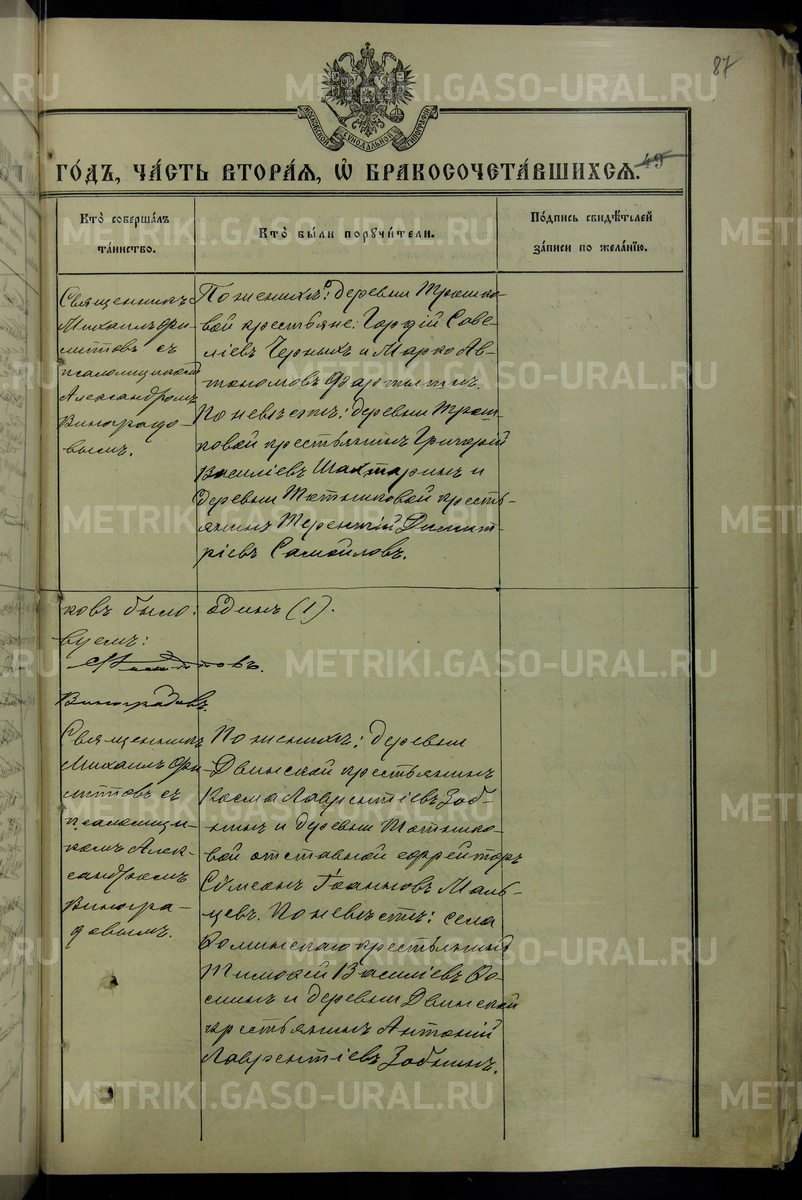 87
МОСКОВСКОЙ СѴНОДАЛЬНОЙ ТИПОГРАФІИ
ГО́ДЪ, ЧА́СТЬ ВТОРА́Я, Ѽ БРАКОСОЧЕТА́ВШИХСЯ.
49
Кто̀ соверша́лъ
та́инство.
Кто̀ бы́ли поручи́тели.
По́дпись свидѣ́телей
за́писи по жела́нїю.
Священникъ
Михаилъ Фи-
липповъ съ
псаломщикомъ
Александромъ
Виноградо-
вымъ.
По женихѣ: деревни Трошко-
вой крестьяне: Гордій Саве-
ліевъ Черныхъ и Марко Ав-
тономовъ
По невѣстѣ: деревни Трош-
ковой крестьянинъ Григорій
Василіевъ Шахтаринъ и
деревни Мотышковой кресть-
янинъ Терентій Димит-
ріевъ Самойловъ.
ковъ было: одинъ (1).
вуемъ:
Виноградовъ.
Священникъ
Михаилъ Фи-
липповъ съ
псаломщи-
комъ Алек-
сандромъ
Виногра-
довымъ.
По женихѣ: деревни
Двинской крестьянинъ
Косма Лаврентіевъ Зоб-
нинъ и деревни
вой отставной ефрейторъ
Сѵмеонъ Іоанновъ Маль-
цевъ. По невѣстѣ: села
крестьянинъ
Тимоѳей Василіевъ
и деревни Двинской
крестьянинъ Антоній
Лаврентіевъ Зобнинъ.
METRIKI.GASO-URAL.RU